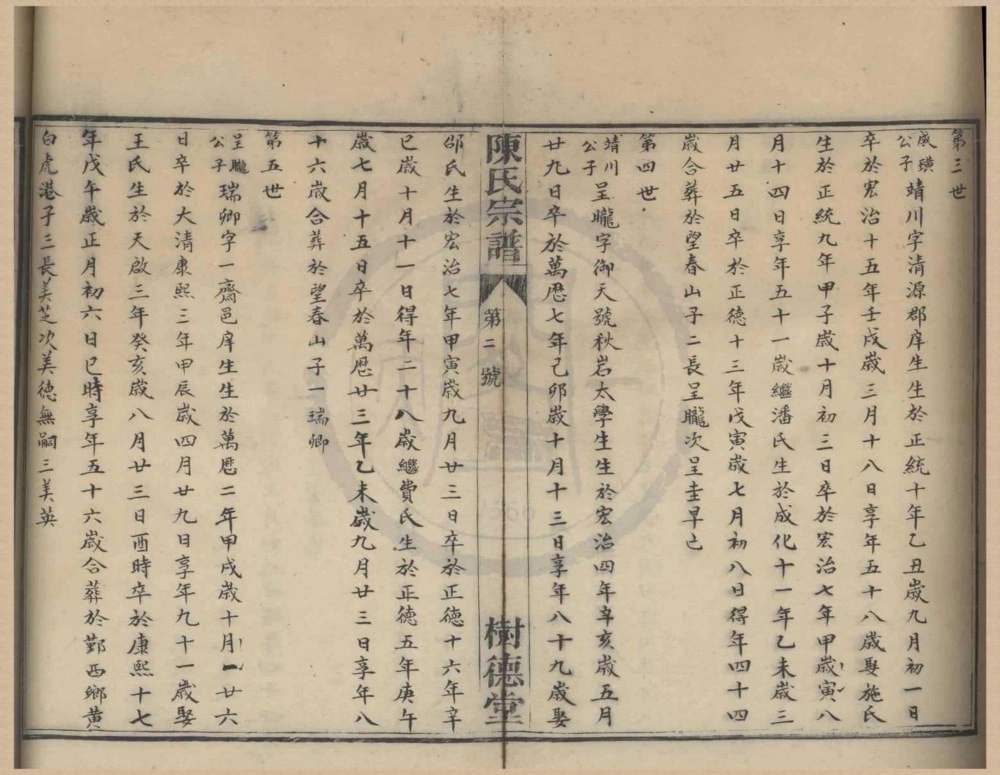 第三世
威璜公子靖川字清源郡庠生生於正統十年乙丑歲九月初一日
卒於宏治十五年壬戌歲三月十八日享年五十八歲娶施氏
生於正統九年甲子歲十月初三日卒於宏治七年甲歲寅八
月十四日享年五十一歲繼潘氏生於成化十一年乙未歲三
月廿五日卒於正德十三年戊寅歲七月初八日得年四十四
歲合葬於望春山子二長呈朧次呈圭早亡
第四世
靖川公子呈朧字御天號秋岩太學生生於宏治四年辛亥歲五月
廿九日卒於萬厯七年己卯歲十月十三日享年八十九歲娶
陳氏宗譜 第二號 樹德堂
邵氏生於宏治七年甲寅歲九月廿三日卒於正德十六年辛
巳歲十月十一日得年二十八歲繼費氏生於正德五年庚午
歲七月十五日卒於萬厯廿三年乙未歲九月廿三日享年八
十六歲合葬於望春山子一瑞卿
第五世
呈朧公子瑞卿字一齋邑庠生生於萬厯二年甲戌歲十月一廿六
日卒於大清康熙三年甲辰歲四月廿九日享年九十一歲娶
王氏生於天啟三年癸亥歲八月廿三日酉時卒於康熙十七
年戊午歲正月初六日巳時享年五十六歲合葬於鄞西鄉黃
白虎港子三長美芝次美德無嗣三美英